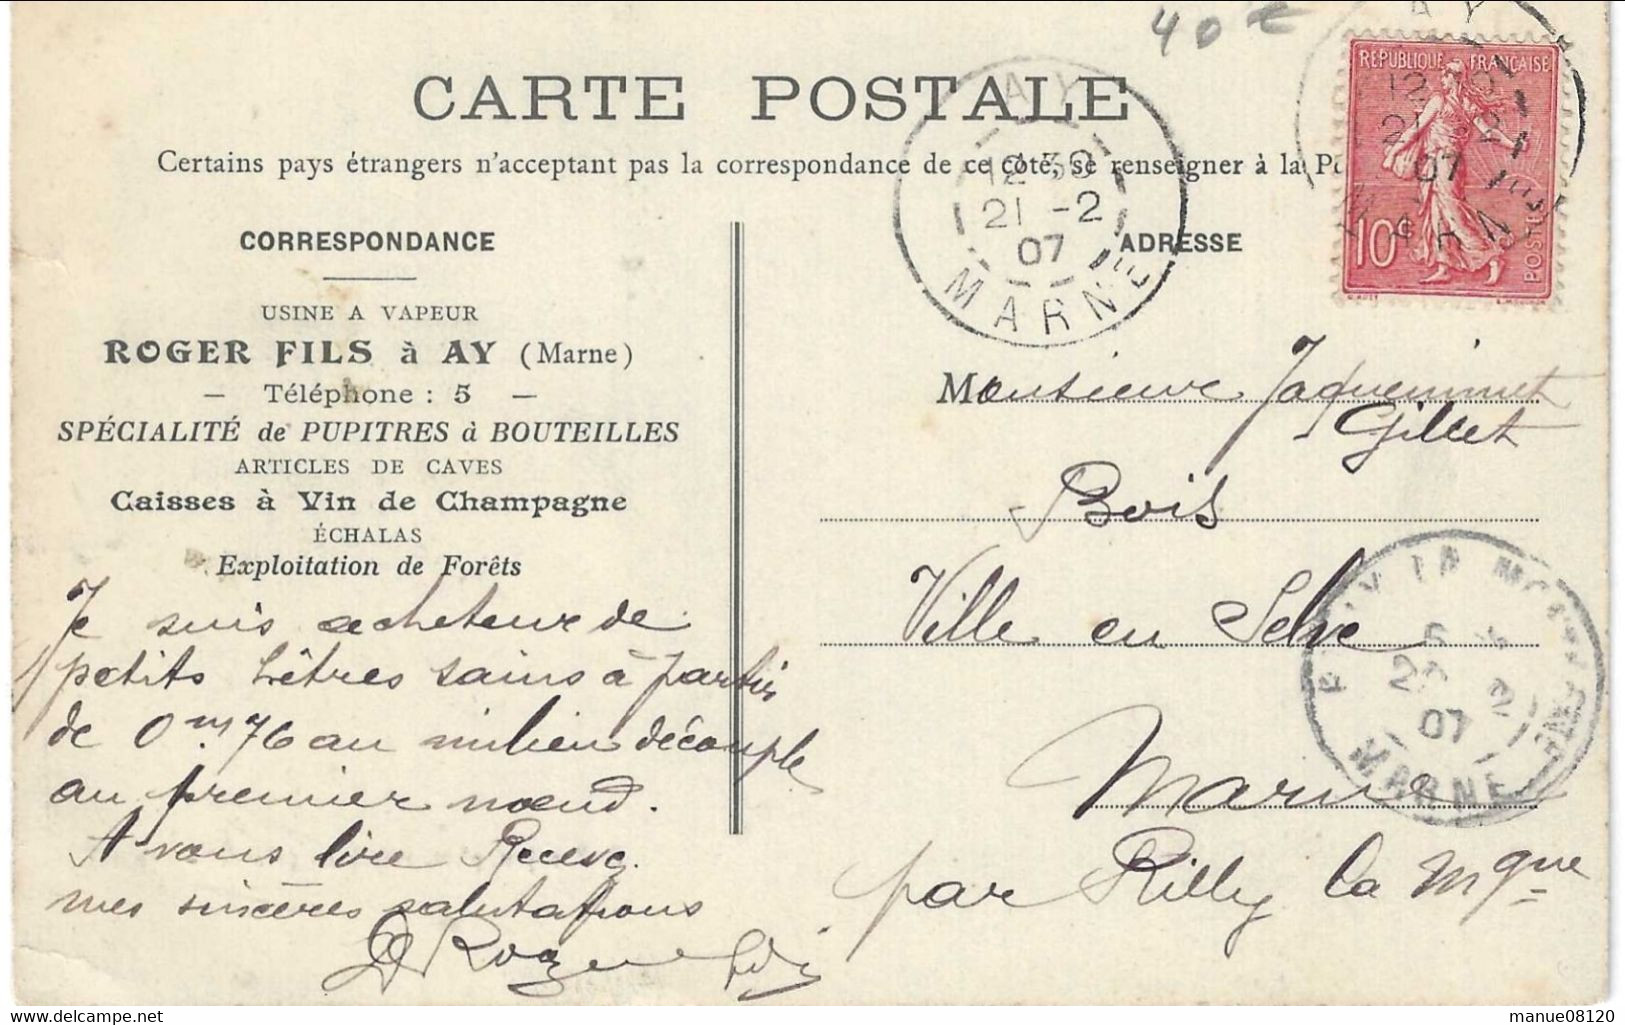 40 €
CARTE POSTALE
Certains pays étrangers n'acceptant pas la correspondance de ce côté, se renseigner à la Po
AY
12 30
21 -2
07
MARNE
RÉPUBLIQUE FRANÇAISE
10c
POSTES
AY
12 30
21 -2
07
MARNE
CORRESPONDANCE
ADRESSE
USINE A VAPEUR
ROGER FILS à AY (Marne)
— Téléphone : 5 —
SPÉCIALITÉ de PUPITRES à BOUTEILLES
ARTICLES DE CAVES
Caisses à Vin de Champagne
ÉCHALAS
Exploitation de Forêts
Je suis acheteur de
petits hêtres sains à partir
de 0m.76 au milieu découpe
au premier nœud.
A vous lire Recevez
mes sincères salutations
Roger fils
Monsieur Jaqueminet
Gillet
Bois
Ville en Selve
Marne
par Rilly la Mgne
07
MARNE
manue08120